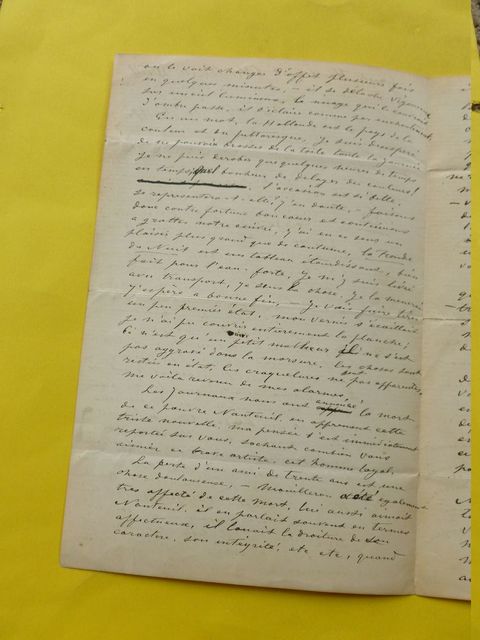 on le voit changer d'effet plusieurs fois
en quelques minutes, — il se détache vigoureux
sur un ciel lumineux, le nuage qui le couvrait
l'ombre passe, il s'éclaire comme par enchantement
En un mot, la Hollande est le pays de la
couleur et du pittoresque, je suis désespéré
de ne pouvoir brosser de la toile toute la journée
je ne puis dérober que quelques heures de temps
en temps, quel bonheur de délayer des couleurs!
l'occasion est si belle,
se représentera-t-elle? j'en doute, — faisons
donc contre fortune bon coeur et continuons
a gratter notre cuivre, j'ai en ce sens un
plaisir plus grand que de coutume, la ronde
de Nuit est un tableau étourdissant, bien
fait pour l'eau-forte, je m'y suis livré
avec transport, je sens la chose, je la mènerai
j'espère a bonne fin, — je vais faire tirer
un peu premier état, mon vernis s'écaillait
je n'ai pu couvrir entièrement la planche,
ce n'est qu'un petit malheur il ne s'est
pas aggravé dans la morsure, les choses sont
restées en état, les craquelures ne sont pas apparentes,
me voila revenu de mes alarmes,
Les journaux nous ont annoncé la mort
de ce pauvre Nanteuil, en apprenant cette
triste nouvelle, ma pensée s'est immédiatement
reportée sur vous, sachant combien vous
aimiez ce brave artiste, cet homme loyal,
La perte d'un ami de trente ans est une
chose douloureuse, — Mouilleron a été également
très affecté de cette mort, lui aussi aimait
Nanteuil, il en parlait souvent en termes
affectueux, il louait la droiture de son
caractère, son intégrité, etc etc, quand